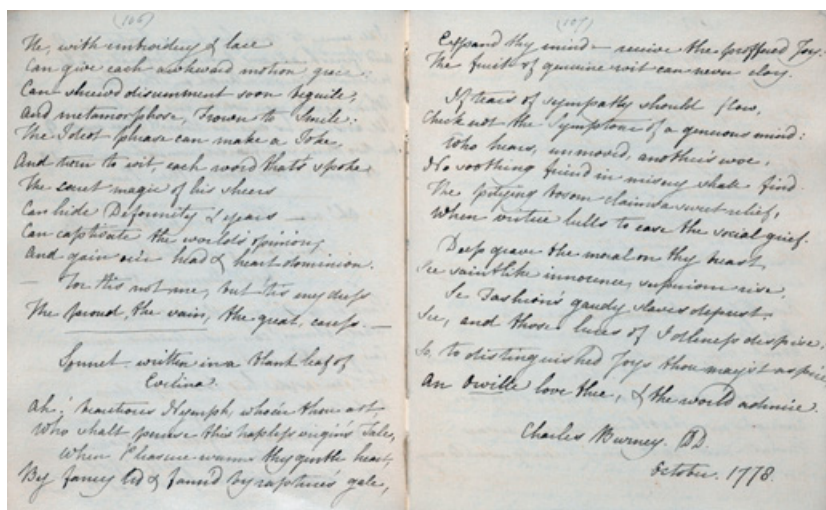 (106)
He, with embroidery & lace
Can give each awkward motion grace:
Can shrewd discernment soon beguile,
And metamorphose, Frown to Smile:
The Ideot phrase can make a Joke,
And turn to wit, each word that's spoke,
The secret magic of his sheers
Can hide Deformity & years —
Can captivate the world's opinion,
And gain o'er head & heart dominion.
— For 'tis not me, but 'tis my dress
The proud, the vain, the great, caress. —
Sonnet. written in a blank leaf of
Evelina.
Ah! beauteous Nymph, whoe'er thou art,
Who shalt peruse this hapless virgin's Tale,
When Pleasure warms thy gentle heart,
By fancy led & fann'd by rapture's gale,
(107)
Expand thy mind — receive the proffered Joy:
The fruit of genuine wit can never cloy.
If tears of sympathy should flow,
Check not the Symptoms of a generous mind:
Who hears, unmoved, another's woe,
No soothing friend in misery shall find.
The pitying bosom claims a sweet relief,
When virtue bids to ease the social grief.
Deep grave the moral on thy breast,
See saintlike innocence, supreme rise,
See Fashion's gaudy slaves deprest,
See, and those lures of Idleness despise,
So, to distinguished Joys thou may'st aspire
An Orville love thee, & the world admire.
Charles Burney. DD.
October. 1778.